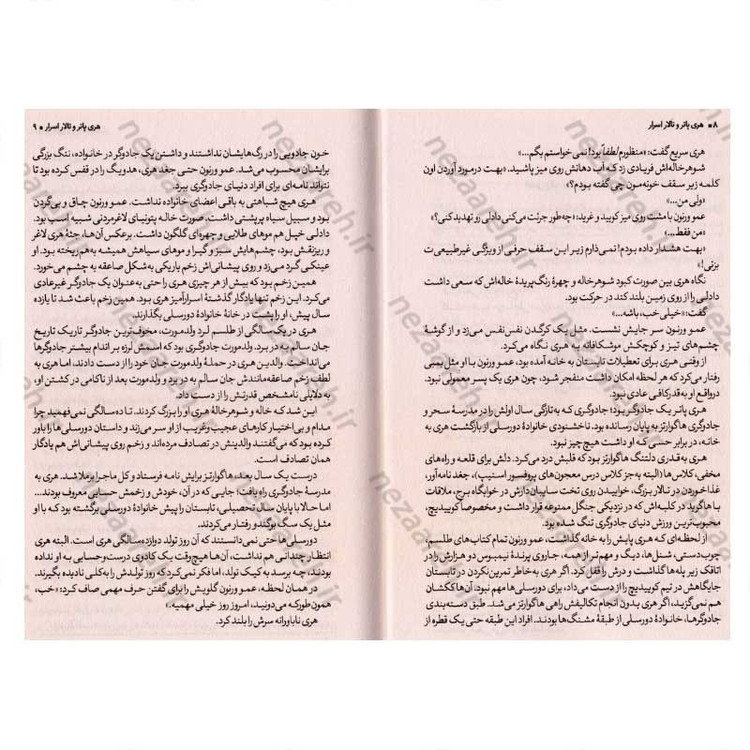 ۸ ● هری پاتر و تالار اسرار
هری سریع گفت: «منظورم/لطفاً بود! نمی خواستم بگم...»
شوهرخاله‌اش فریادی زد که آب دهانش روی میز پاشید. «بهت درمورد آوردن اون
کلمه زیر سقف خونه‌مون چی گفته بودم؟»
«ولی من...»
عمو ورنون با مشت روی میز کوبید و غرید: «چه‌طور جرئت می‌کنی دادلی رو تهدید کنی؟»
«من فقط...»
«بهت هشدار داده بودم! نمی‌ذارم زیر این سقف حرفی از ویژگی غیرطبیعی‌ت
بزنی!»
نگاه هری بین صورت کبود شوهرخاله و چهرهٔ رنگ‌پریدهٔ خاله‌اش که سعی داشت
دادلی را از روی زمین بلند کند در حرکت بود.
گفت: «خیلی خب، باشه...»
عمو ورنون سر جایش نشست. مثل یک کرگدن نفس‌نفس می‌زد و از گوشهٔ
چشم‌های تیز و کوچکش موشکافانه به هری نگاه می‌کرد.
از وقتی هری برای تعطیلات تابستان به خانه آمده بود، عمو ورنون با او مثل بمبی
رفتار می‌کرد که هر لحظه امکان داشت منفجر شود، چون هری یک پسر معمولی نبود.
درواقع او به‌قدرکافی عادی نبود.
هری پاتر یک جادوگر بود؛ جادوگری که به‌تازگی سال اولش را در مدرسهٔ سحر و
جادوگری هاگوارتز به پایان رسانده بود. ناخشنودی خانوادهٔ دورسلی از بازگشت هری به
خانه، در برابر حسی که او داشت هیچ چیز نبود.
هری به‌قدری دلتنگ هاگوارتز بود که قلبش درد می‌کرد. دلش برای قلعه و راه‌های
مخفی، کلاس‌ها (البته به‌جز کلاس درس معجون‌های پروفسور اسنیپ)، جغد نامه‌آور،
غذا خوردن در تالار بزرگ، خوابیدن روی تخت سایبان‌دارش در خوابگاه برج، ملاقات
با هاگرید در کلبه‌اش که در نزدیکی جنگل ممنوعه قرار داشت و مخصوصاً کوییدیچ،
محبوب‌ترین ورزش دنیای جادوگری تنگ شده بود.
از لحظه‌ای که هری پایش را به خانه گذاشت، عمو ورنون تمام کتاب‌های طلسم،
چوب‌دستی، شنل‌ها، دیگ و مهم‌تر از همه، جاروی پرندهٔ نیمبوس دو هزارش را در
اتاقک زیر پله‌ها گذاشت و درش را قفل کرد. اگر هری به‌خاطر تمرین نکردن در تابستان
جایگاهش در تیم کوییدیچ را از دست می‌داد، برای دورسلی‌ها مهم نبود. آن‌ها ککشان
هم نمی‌گزید، اگر هری بدون انجام تکالیفش راهی هاگوارتز می‌شد. طبق دسته‌بندی
جادوگرها، خانوادهٔ دورسلی از طبقهٔ مشنگ‌ها بودند. افراد این طبقه حتی یک قطره از
هری پاتر و تالار اسرار ● ۹
خون جادویی را در رگ‌هایشان نداشتند و داشتن یک جادوگر در خانواده، ننگ بزرگی
برایشان محسوب می‌شد. عمو ورنون حتی جغد هری، هدویگ را در قفس کرده بود تا
نتواند نامه‌ای برای افراد دنیای جادوگری ببرد.
هری هیچ شباهتی به باقی اعضای خانواده نداشت. عمو ورنون چاق و بی‌گردن
بود و سبیل سیاه پرپشتی داشت، صورت خاله پتونیا لاغرمردنی شبیه اسب بود.
دادلی خپل هم موهای طلایی و چهره‌ای گلگون داشت. برعکس آن‌ها، جثهٔ هری لاغر
و ریزنقش بود، چشم‌هایش سبز و گیرا و موهای سیاهش همیشه به‌هم‌ریخته بود. او
عینکی گرد می‌زد و روی پیشانی‌اش زخم باریکی به‌شکل صاعقه به چشم می‌خورد.
همین زخم بود که بیش از هر چیزی هری را حتی به‌عنوان یک جادوگر غیرعادی
می‌کرد. این زخم تنها یادگار گذشتهٔ اسرارآمیز هری بود. همین زخم باعث شد تا یازده
سال پیش، او را پشت در خانهٔ خانوادهٔ دورسلی بگذارند.
هری در یک‌سالگی از طلسم لرد ولدمورت، مخوف‌ترین جادوگر تاریک تاریخ
جان سالم به در برد. ولدمورت جادوگری بود که اسمش لرزه بر اندام بیشتر جادوگرها
می‌انداخت. والدین هری در حملهٔ ولدمورت جان خود را از دست دادند، اما هری به
لطف زخم صاعقه‌مانندش جان سالم به در برد و ولدمورت بعد از ناکامی در کشتن او،
به دلایلی نامشخص قدرتش را از دست داد.
این شد که خاله و شوهرخالهٔ هری او را بزرگ کردند. تا ده‌سالگی نمی‌فهمید چرا
مدام و بی‌اختیار کارهای عجیب‌وغریب از او سر می‌زند و داستان دورسلی‌ها را باور
کرده بود که می‌گفتند والدینش در تصادف مرده‌اند و زخم روی پیشانی‌اش هم یادگار
همان تصادف است.
درست یک سال بعد، هاگوارتز برایش نامه فرستاد و کل ماجرا برملا شد. هری به
مدرسهٔ جادوگری راه یافت؛ جایی که در آن، خودش و زخمش حسابی معروف بودند...
اما حالا با پایان سال تحصیلی، تابستان را پیش خانوادهٔ دورسلی برگشته بود که با او
مثل یک سگ بوگندو رفتار می‌کردند.
دورسلی‌ها حتی نمی‌دانستند که آن روز تولد دوازده‌سالگی هری است. البته هری
انتظار چندانی هم نداشت، آن‌ها هیچ‌وقت یک کادوی درست‌وحسابی به او نداده
بودند، چه برسد به کیک تولد، اما فکر نمی‌کرد که روز تولدش را به‌کلی نادیده بگیرند.
در همان لحظه، عمو ورنون گلویش را برای گفتن حرف مهمی صاف کرد: «خب،
همون‌طور که می‌دونید، امروز روز خیلی مهمیه.»
هری ناباورانه سرش را بلند کرد.
nezaareh.ir